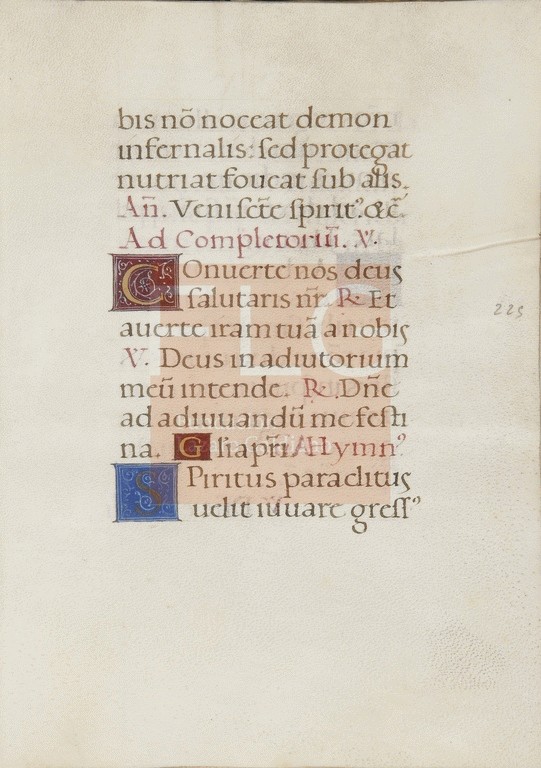 bis nõ noceat demon
infernalis: sed protegat
nutriat foueat sub alis.
Añ. Veni scte spirit⁹. &c̃.
Ad Completoriũ. V.
Conuerte nos deus
salutaris nr̃. R. Et
auerte iram tuã a nobis
V. Deus in adiutorium
meũ intende. R. Dñe
ad adiuuandũ me festi
na. Glia pr̃i Hymn⁹
SPiritus paraclitus
uelit iuuare gress⁹
225
FLG